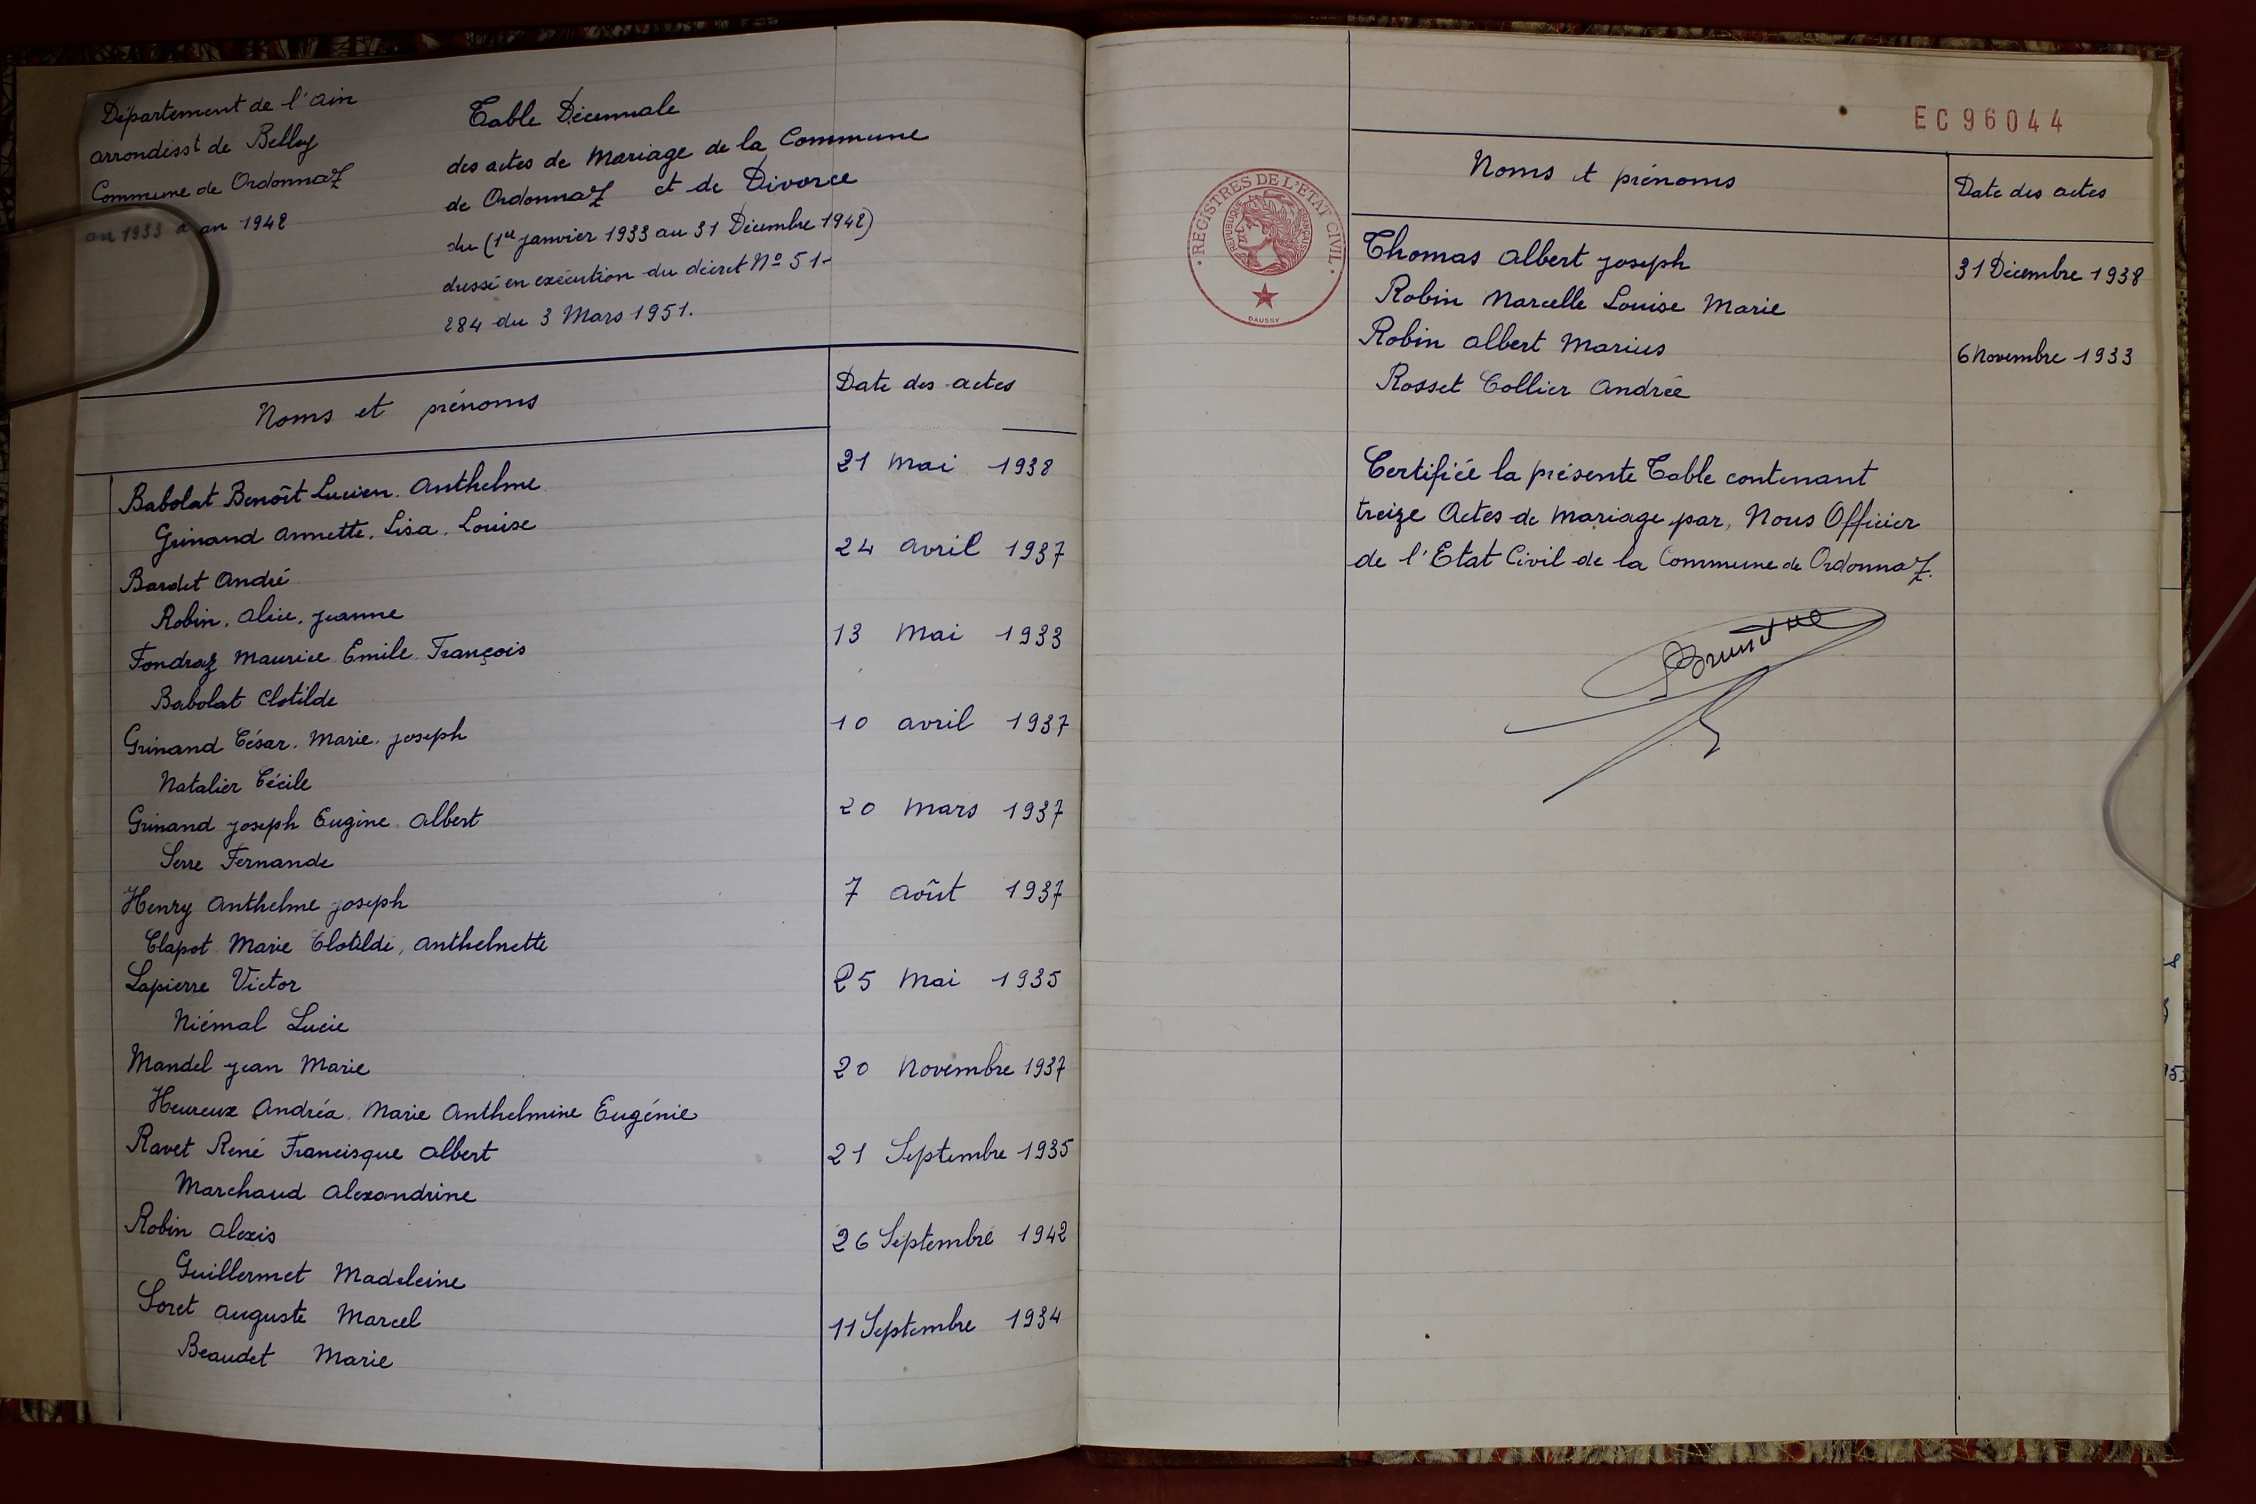 Département de l'ain
arrondisst de Belley
Commune de Ordonnaz
an 1933 à an 1942
Table Décennale
des actes de Mariage de la Commune
de Ordonnaz et de Divorce
du (1er janvier 1933 au 31 Décembre 1942)
dressé en exécution du décret No 51-
284 du 3 Mars 1951.
Noms et prénoms Date des actes
Babolat Benoît Lucien. Anthelme 21 Mai 1938
Grinand Annette. Lisa. Louise
Bardet André 24 avril 1937
Robin. Alice. Jeanne
Fondraz Maurice Emile François 13 Mai 1933
Babolat Clotilde
Grinand César. Marie. Joseph 10 avril 1937
Natalier Cécile
Grinand Joseph Eugène Albert 20 Mars 1937
Serre Fernande
Henry Anthelme Joseph 7 Août 1937
Clapot Marie Clotilde, Anthelmette
Lapierre Victor 25 Mai 1935
Niémal Lucie
Mandel Jean Marie 20 Novembre 1937
Heureux Andréa. Marie Anthelmine Eugénie
Ravet René Francisque Albert 21 Septembre 1935
Marchaud Alexandrine
Robin Alexis 26 Septembre 1942
Guillermet Madeleine
Soret Auguste Marcel 11 Septembre 1934
Beaudet Marie
EC 96044
REGISTRES DE L'ETAT CIVIL
REPUBLIQUE FRANÇAISE
DAUSSY
Noms et prénoms Date des actes
Thomas Albert Joseph 31 Décembre 1938
Robin Marcelle Louise Marie
Robin Albert Marius 6 Novembre 1933
Rosset Collier Andrée
Certifiée la présente Table contenant
treize Actes de Mariage par, Nous Officier
de l'Etat Civil de la Commune de Ordonnaz.